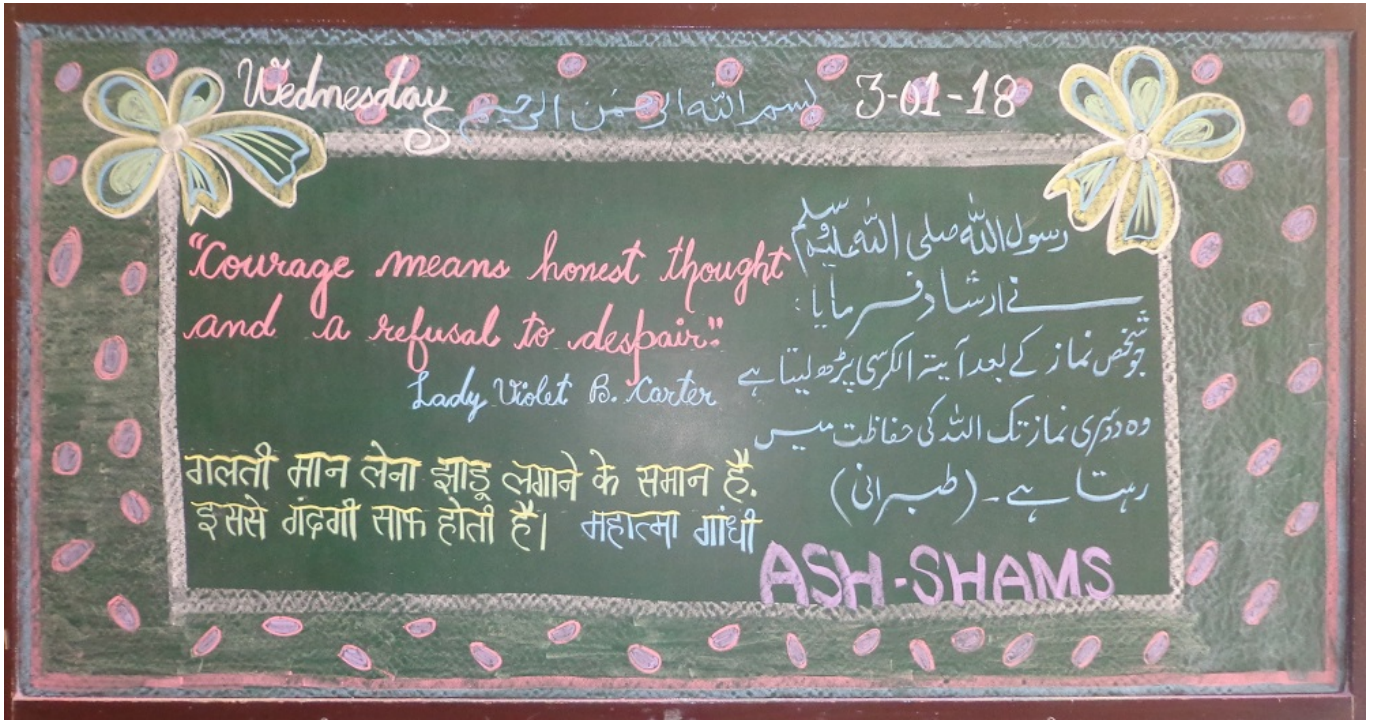 Wednesday بسم الله الرحمٰن الرحيم 3-01-18
"Courage means honest thought
and a refusal to despair."
Lady Violet B. Carter
गलती मान लेना झाडू लगाने के समान है.
इससे गंदगी साफ होती है। महात्मा गांधी
رسول اللہ صلی اللہ علیہ وسلم
نے ارشاد فرمایا:
جو شخص نماز کے بعد آیتہ الکرسی پڑھ لیتا ہے
وہ دوسری نماز تک اللہ کی حفاظت میں
رہتا ہے۔ (طبرانی)
ASH-SHAMS